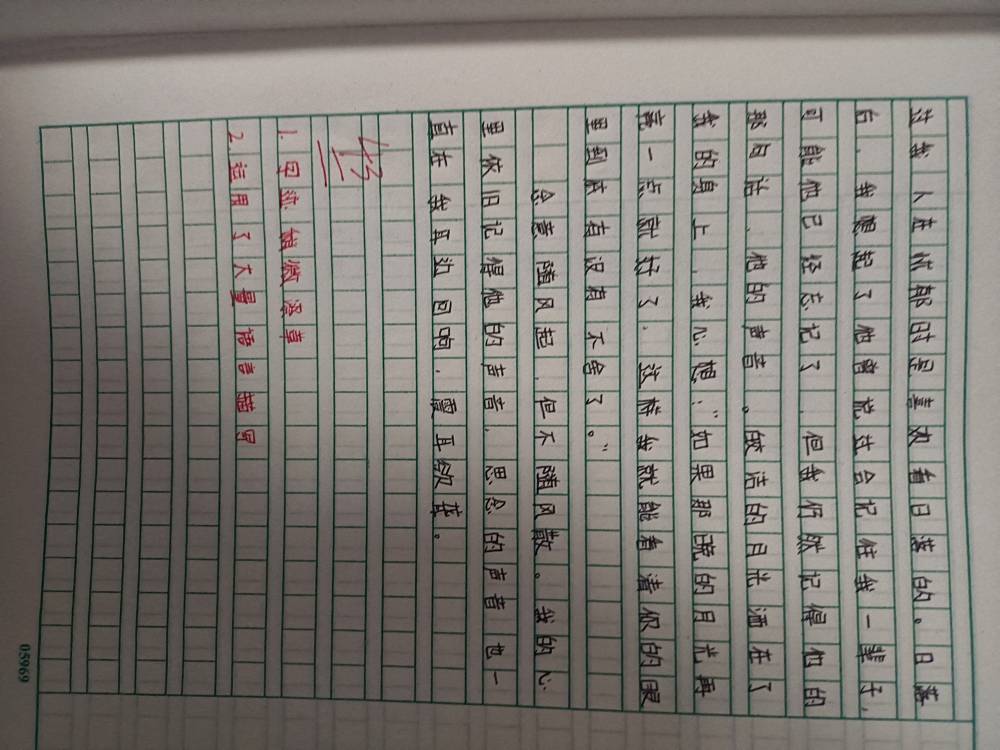 过我人在忧郁时是喜欢看日落的。日落
后，我想起了他曾说过会记住我一辈子，
可能他已经忘记了，但我仍然记得他的
那句话，他的声音。皎洁的月光洒在了
我的身上，我心想：“如果那晚的月光再
亮一点就好了，这样我就能看清你的眼
里到底有没有不舍了。”
念意随风起，但不随风散。我的心
里依旧记得他的声音，思念的声音也一
直在我耳边回响，震耳欲聋。
43
1. 字迹稍微潦草
2. 运用了大量语言描写
05969